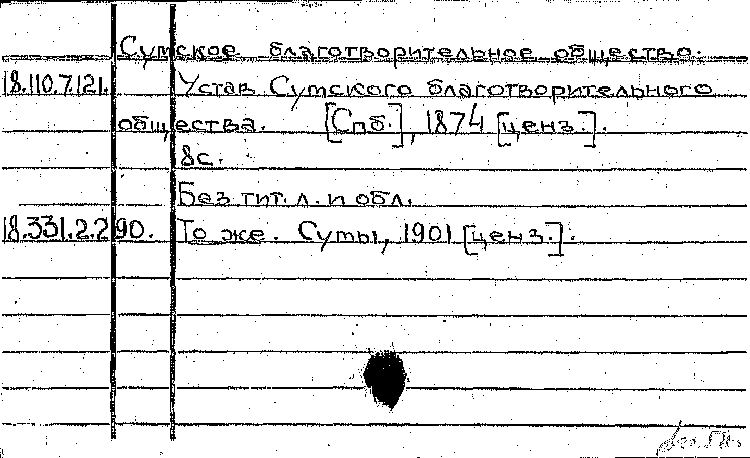 Сумское благотворительное общество.
18.110.7.121. Устав Сумского благотворительного
общества. [Спб.], 1874 [ценз.].
8с.
Без тит. л. и обл.
18.331.2.290. То же. Сумы, 1901 [ценз.].